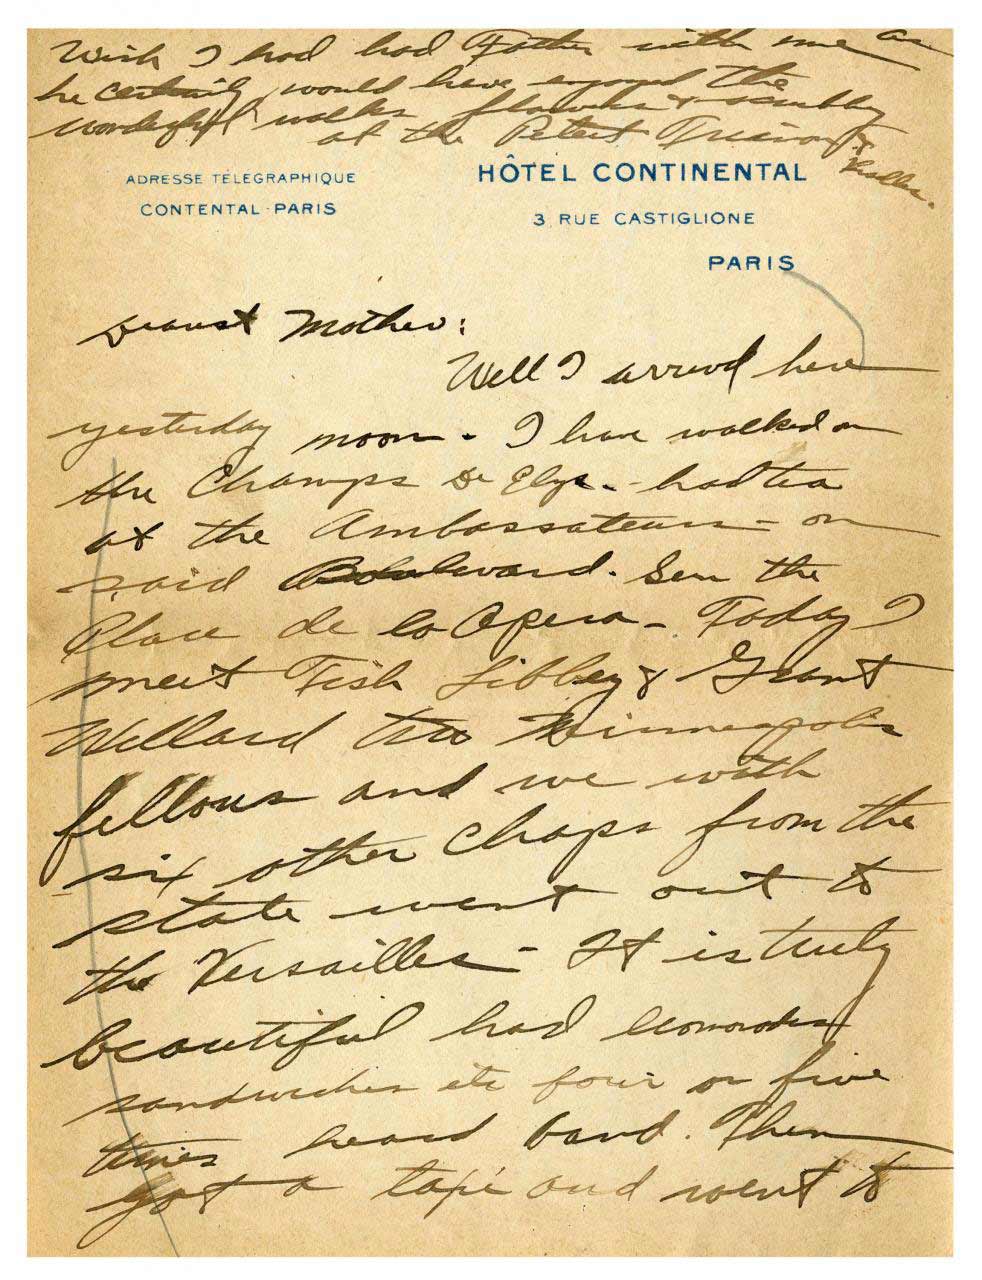 Wish I had had Father with me as
he certainly would have enjoyed the
wonderful walks flowers &
at the Petit Trianon &
ADRESSE TÉLÉGRAPHIQUE
CONTENTAL-PARIS
HÔTEL CONTINENTAL
3, RUE CASTIGLIONE
PARIS
Dearest Mother:
Well I arrived here
yesterday noon - I have walked on
the Champs De Elys. - had tea
at the Ambassateurs - on
said Boulevard. Seen the
Place de la Opera - Today I
meet Fish Libbey & Grant
Willard two Minneapolis
fellows and we with
six other chaps from the
state went out to
the Versailles - It is truly
beautiful had lemonades
sandwiches etc four or five
times heard band. Then
got a taxi and went to